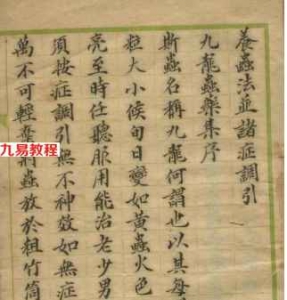 養蟲法並諸症調引
九龍蟲藥集序
斯蟲名稱九龍何謂也以其每
粒大小候旬日變如黃蟲火色
亮至時任聽服用能治老少男
須按症調引無不神效如無症
萬不可輕棄將蟲放於粗竹筒
九易教程